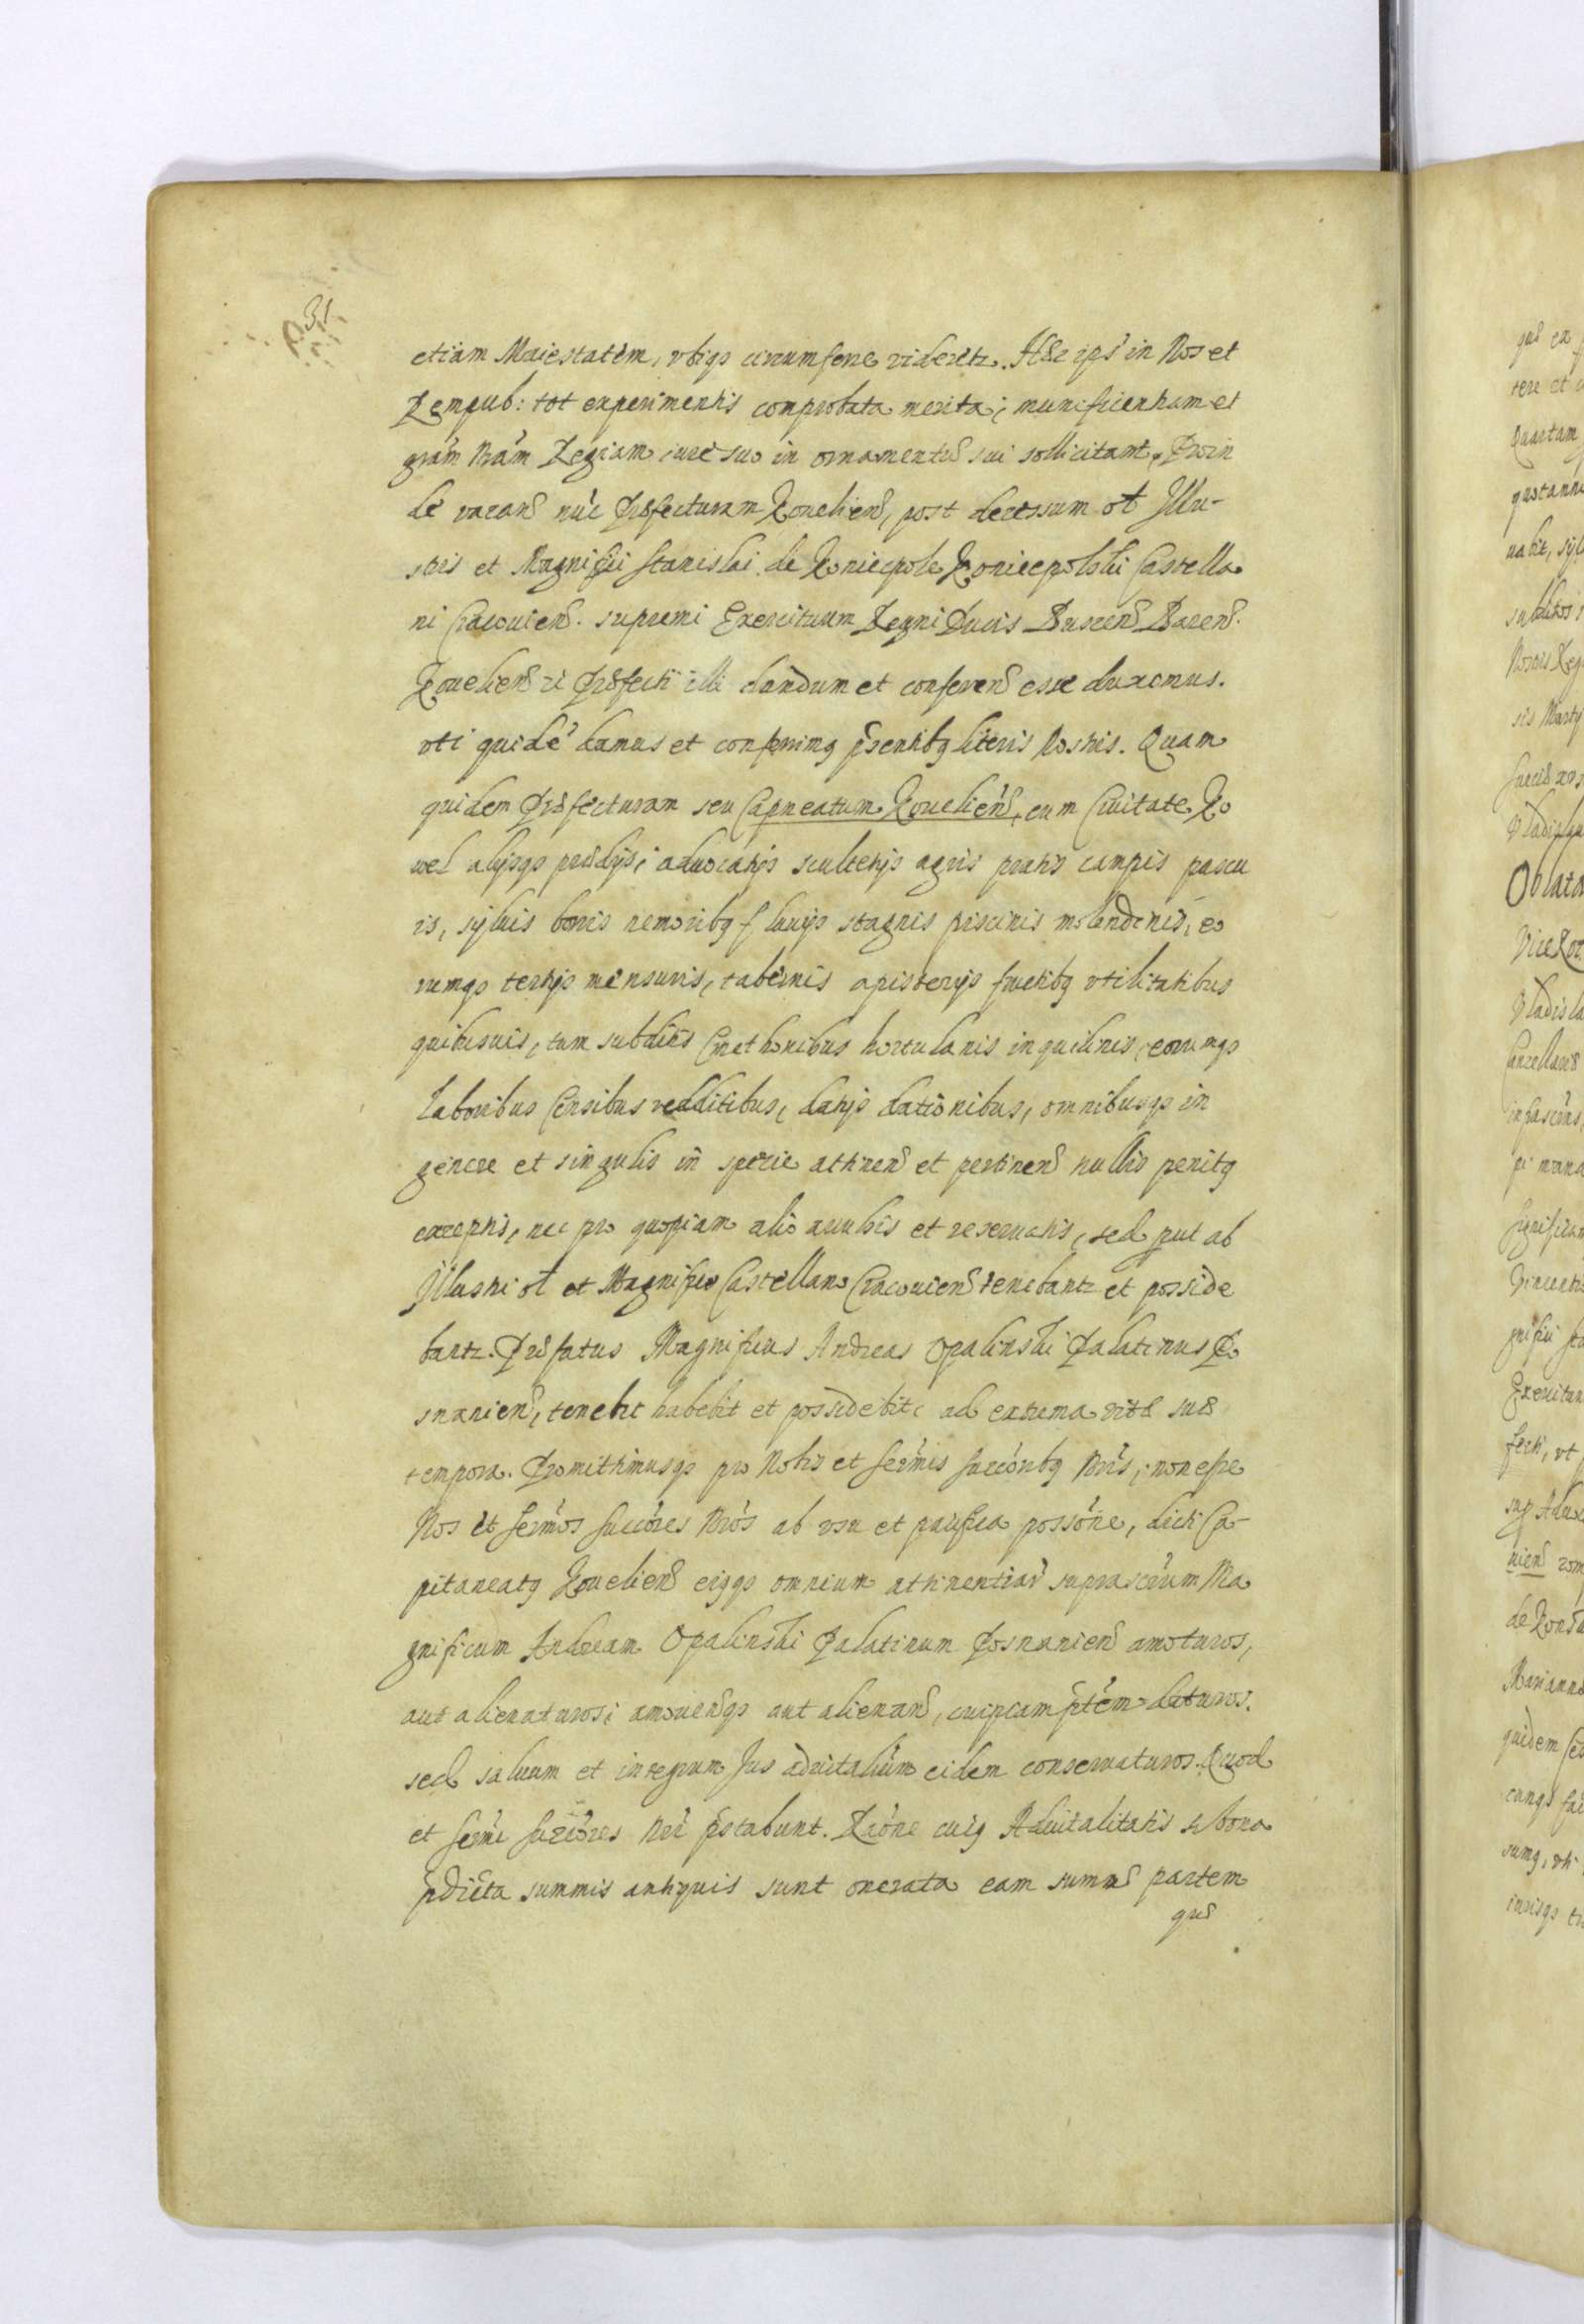 31
etiam Maiestatem, vbiqs circumferre videretr. Hæc ipś in Nos et
Rempub: tot experimentis comprobata merita, munificentiam et
grám Nrám Regiam iure suo in ornamentũ sui sollicitant. Proin
de vacanś nuć Præfecturam Koueliens, post decessum ol Illu-
stris et Magnifici Stanislai de Koniecpole Koniecpolski Castella
ni Cracouiens. supremi Exercituum Regni Ducis Buscens Barens.
Koueliens et Præfecti illi dandum et conferens esse duximus.
vti quidé damus et conferimq pŕsentibq literis Nostris. Quam
quidem Præfecturam seu Capneatum Kouelieńs, cum Ciuitate Ko
wel alijsqs prædijs, aduocatijs scultetijs agris pratis campis pascu
is, syluis boris nemoribq fluuijs stagnis piscinis molendinis, eo
rumqs tertijs mensuris, tabernis apisterijs fructibq vtilitatibus
quibusuis, tum subditis Cmethonibus hortulanis inquilinis, eorumqs
laboribus Censibus redditibus, datijs dationibus, omnibusqs in
genere et singulis in specie attinens et pertinens nullis penitq
exceptis, nec pro quopiam alio auulsis et reseruatis, sed put ab
Illustri ol et Magnifico Castellano Cracouiens tenebantr et posside
bantr. Præfatus Magnificus Andreas Opalinski Palatinus Po
snaniens, tenebit habebit et possidebit, ad extrema vitæ suæ
tempora. Promittimusqs pro Nobis et Serḿis Succóribq Nrís, non esse
Nos et Serḿos Succóres Nrós ab vsu et pacifica possóne, dicti Ca-
pitaneatq Koueliens eiqqs omnium attinentiar suprascŕum Ma
gnificum Andream Opalinski Palatinum Posnaniens amoturos,
aut alienaturos, amouensqs aut alienans, cuipiam ptẽm daturos.
sed saluum et integrum Jus aduitalium eidem conseruaturos. Quod
et Serḿi Succóres Nrí pŕstabunt. Raóne cuiq Aduitalitatis si bona
pdicta summis antiquis sunt onerata eam summæ partem
quæ